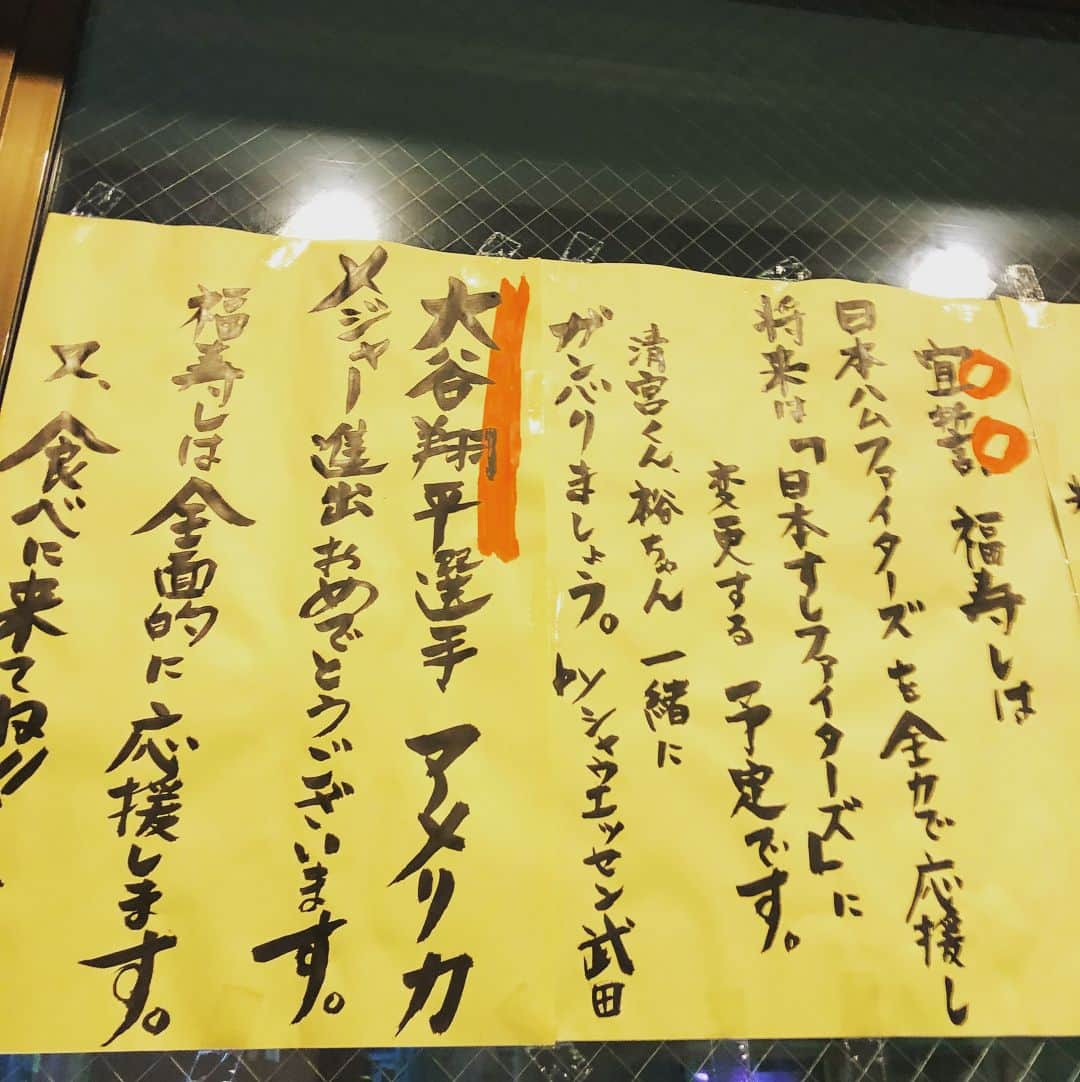 宣誓 福寿しは
日本ハムファイターズを全力で応援し
将来は「日本すしファイターズ」に
変更する 予定です。
清宮くん、裕ちゃん 一緒に
ガンバりましょう。 byシャウエッセン武田
大谷翔平選手 アメリカ
メジャー進出おめでとうございます。
福寿しは全面的に応援します。
又、食べに来てね!!